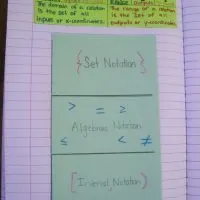 Range (outputs)
The domain of a relation
is the set of all
inputs or x-coordinates.
The range of a relation
is the set of all
outputs or y-coordinates.
{Set Notation}
> = ≥
Algebraic Notation
≤ < ≠
[Interval Notation)